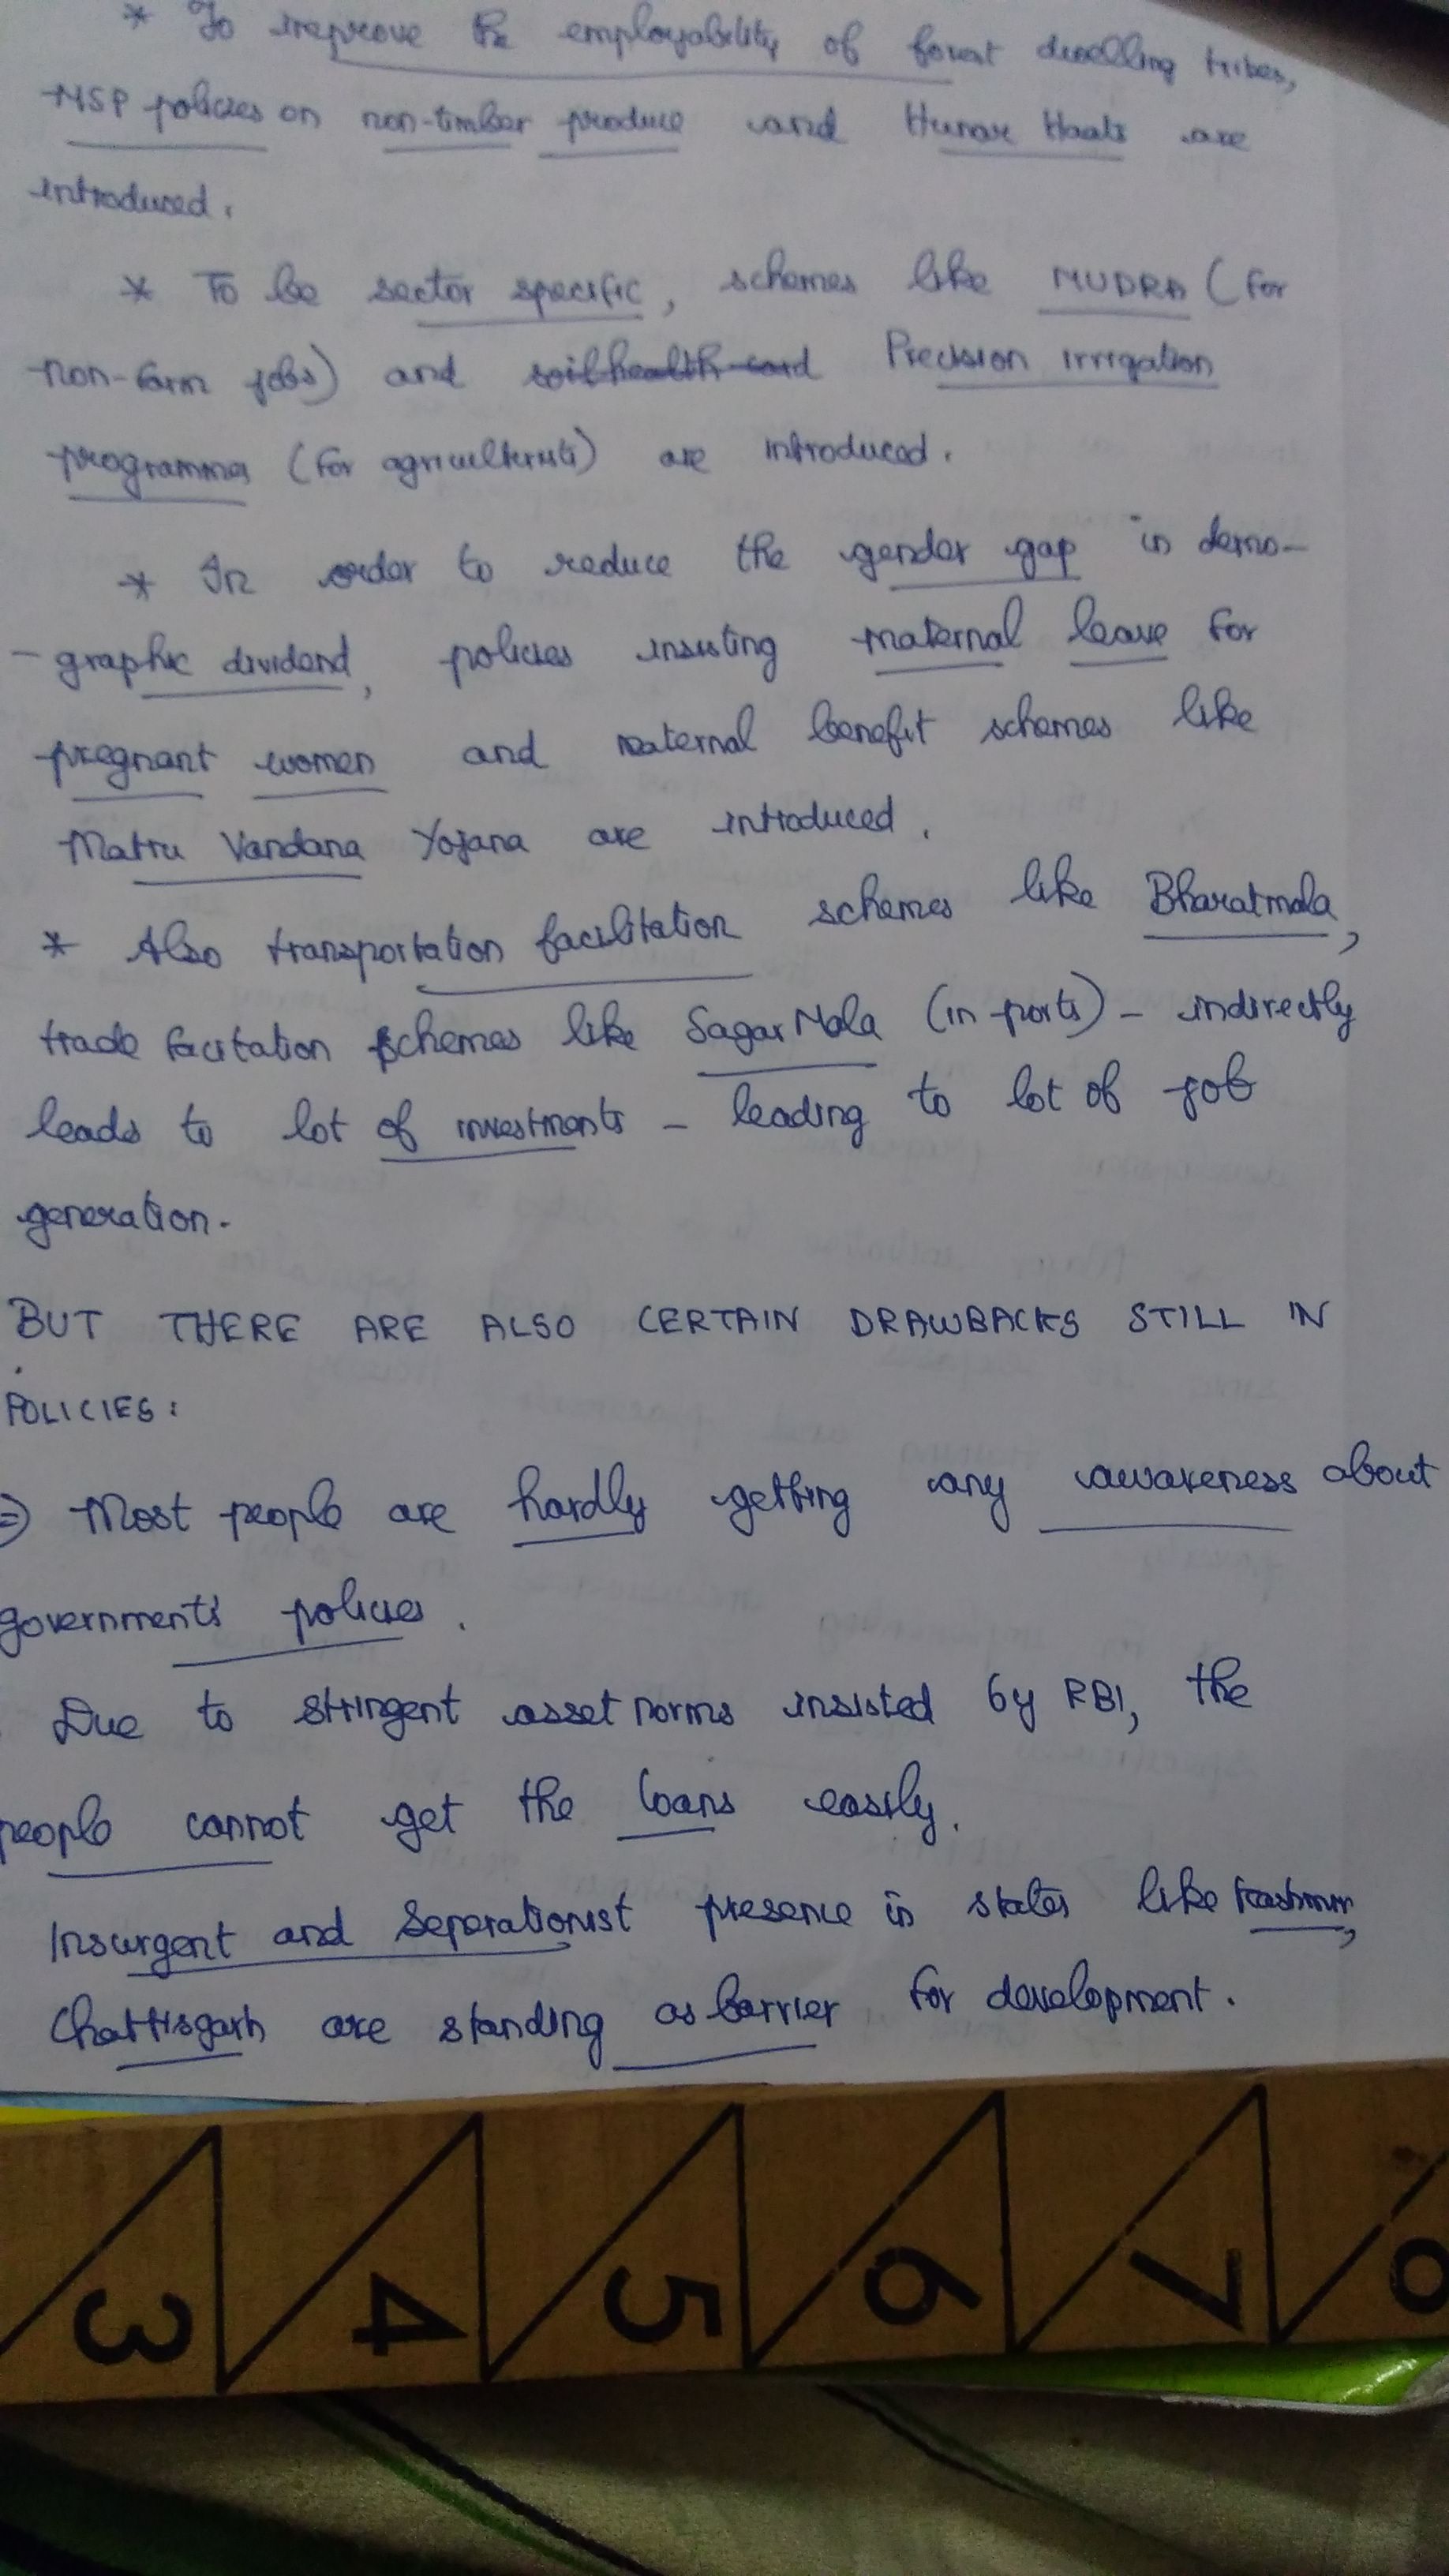 * To improve the employability of forest dwelling tribes,
MSP policies on non-timber produce and Hunar Haats are
introduced.
* To be sector specific, schemes like MUDRA (for
non-farm jobs) and soil health card Precision irrigation
programmes (for agriculturists) are introduced.
* In order to reduce the gender gap in demo-
-graphic dividend, policies insisting maternal leave for
pregnant women and maternal benefit schemes like
Matru Vandana Yojana are introduced.
* Also transportation facilitation schemes like Bharatmala,
trade facitation schemes like SagarMala (in ports) - indirectly
leads to lot of investments - leading to lot of job
generation.
BUT THERE ARE ALSO CERTAIN DRAWBACKS STILL IN
POLICIES:
=) Most people are hardly getting any awareness about
governments' policies.
Due to stringent asset norms insisted by RBI, the
people cannot get the loans easily.
Insurgent and Seperationist presence in states like Kashmir,
Chattisgarh are standing as barrier for development.
3 4 5 6 7